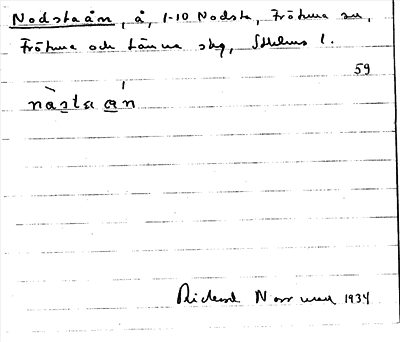 Nodstaån, å, 1-10 Nodsta, Frötuna sn,
Frötuna och Länna skg, Sthlms l.
59
nàsta án
Rickard Norrman 1934